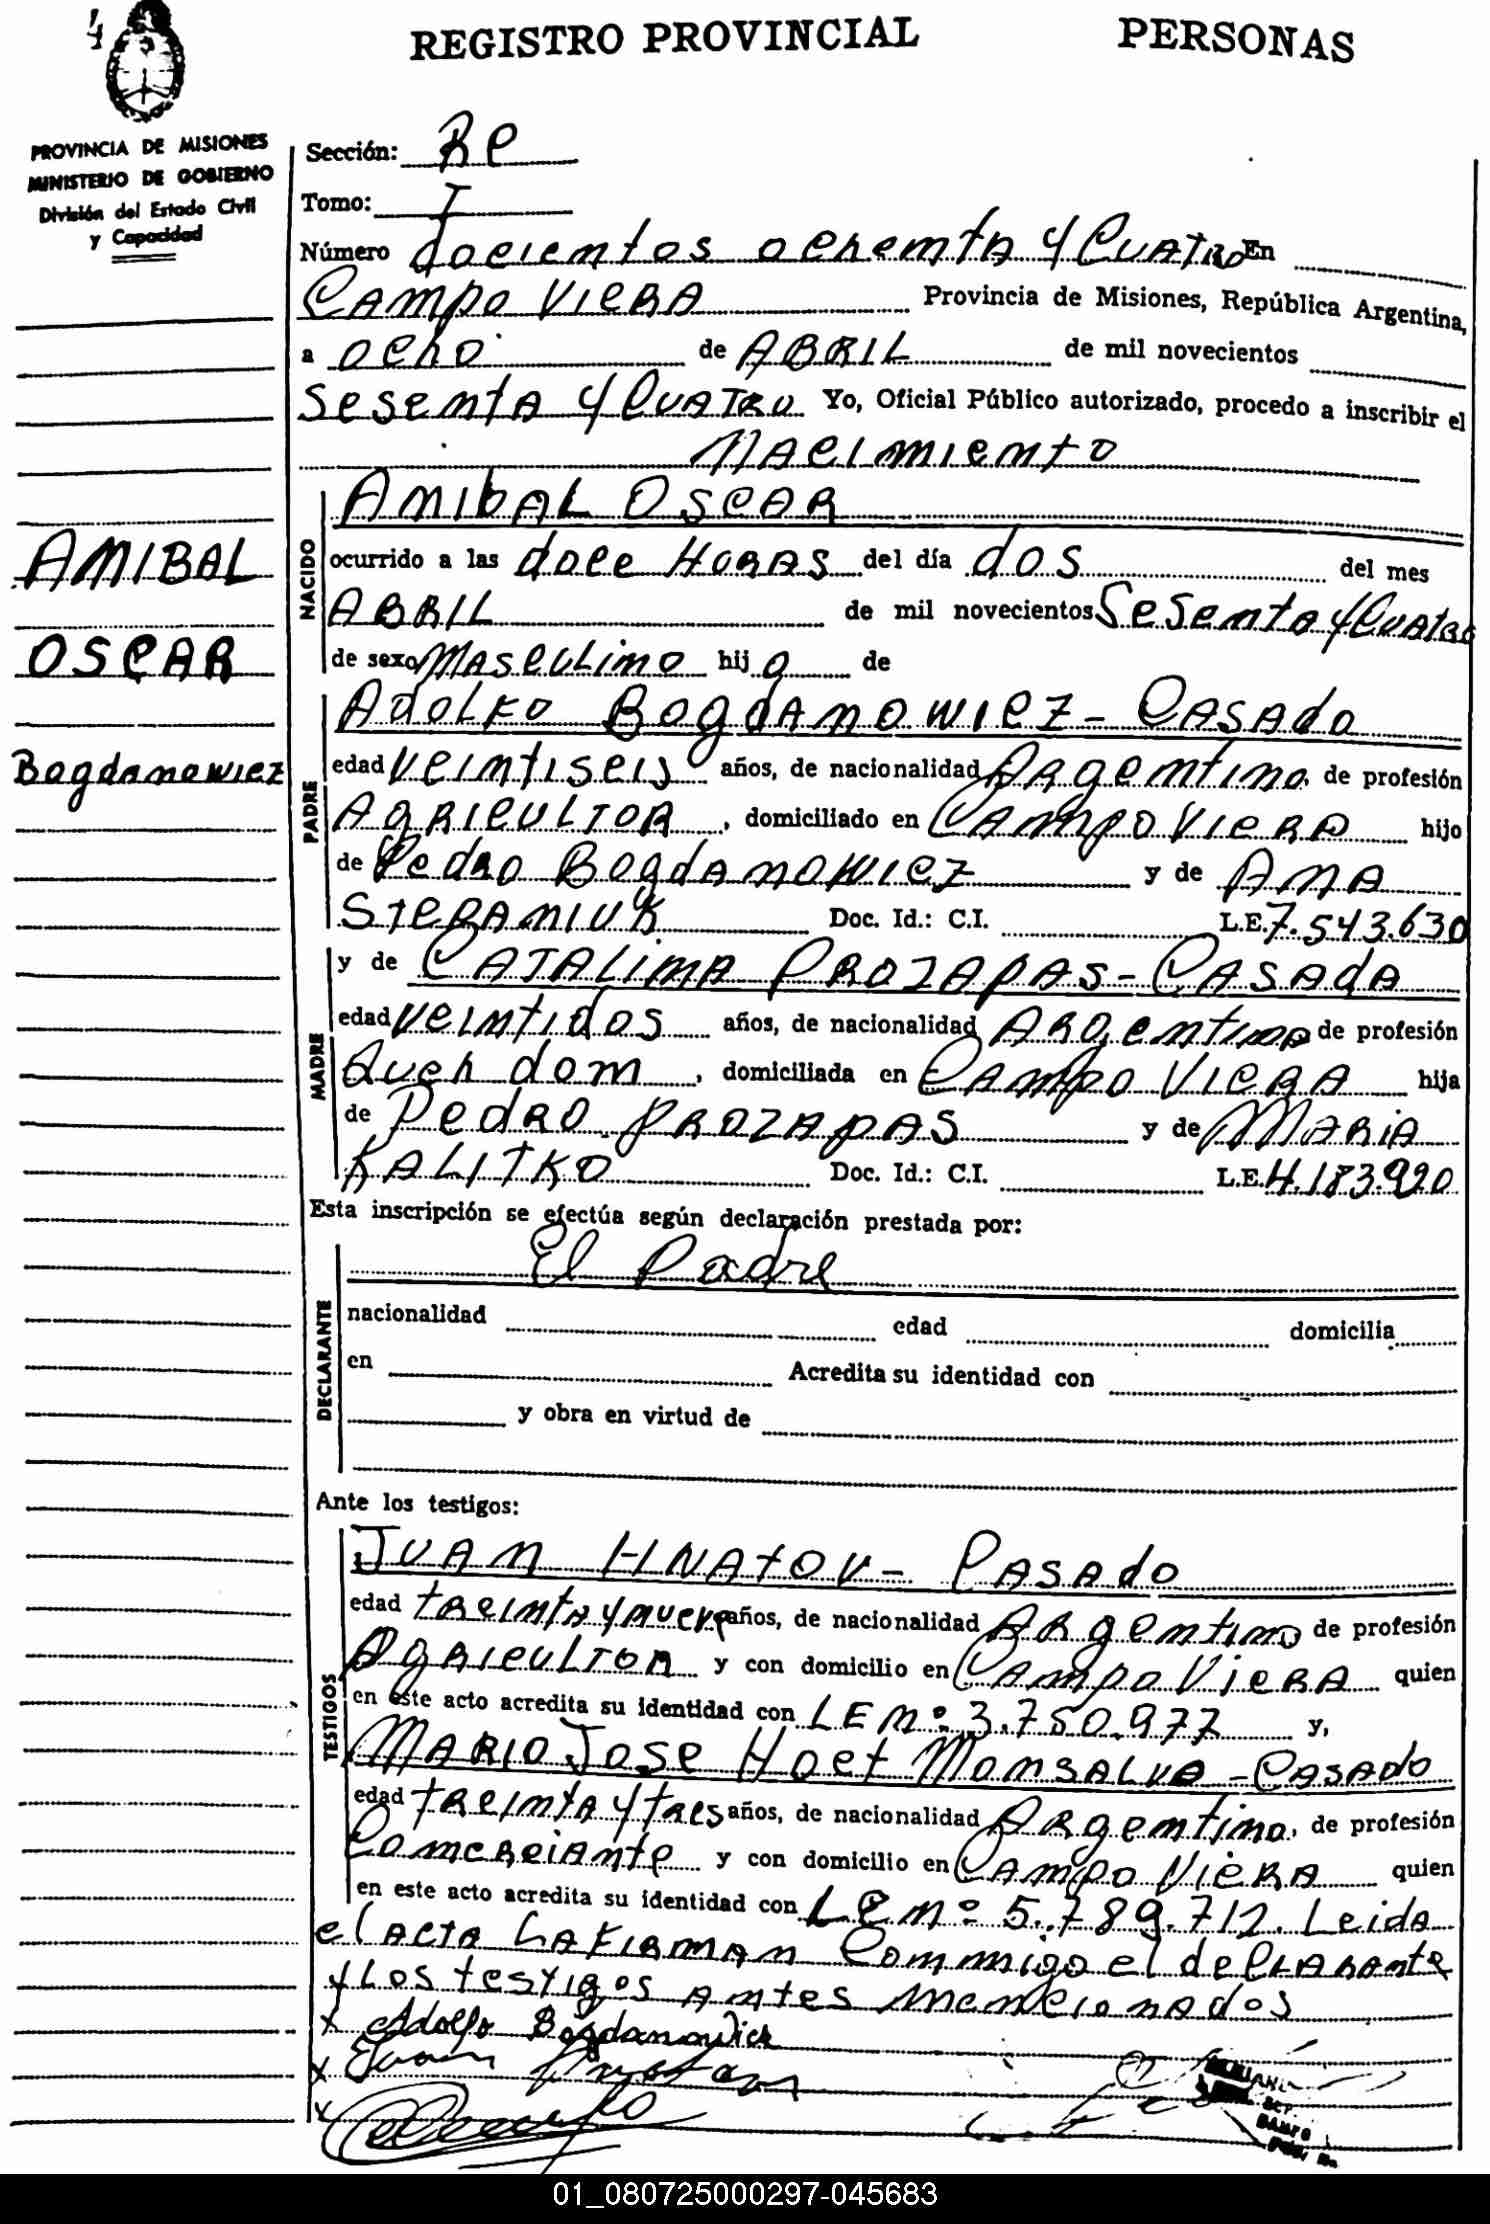 4
REGISTRO PROVINCIAL PERSONAS
PROVINCIA DE MISIONES
MINISTERIO DE GOBIERNO
División del Estado Civil
y Capacidad
Sección: Re
Tomo: I
Número docientos ochenta y Cuatro En
Campo Viera Provincia de Misiones, República Argentina,
a ocho de ABRIL de mil novecientos
Sesenta y Cuatro Yo, Oficial Público autorizado, procedo a inscribir el
Nacimiento
ANIBAL
OSCAR
Bogdanowiez
NACIDO
ANIbAL OSCAR
ocurrido a las doce HORAS del día dos del mes
ABRIL de mil novecientos Sesenta y Cuatro
de sexo Masculino hijo de
PADRE
Adolfo Bogdanowiez - Casado
edad veintiseis años, de nacionalidad Argentino, de profesión
Agricultor, domiciliado en Campo Viera hijo
de Pedro Bogdanowiez y de Ana
Stefaniuk Doc. Id.: C.I. L.E. 7.543.630
MADRE
y de Catalina Prozapas - Casada
edad veintidos años, de nacionalidad Argentina de profesión
Queh dom, domiciliada en Campo Viera hija
de Pedro Prozapas y de Maria
Kalitko Doc. Id.: C.I. L.E. 4.183.920
Esta inscripción se efectúa según declaración prestada por:
DECLARANTE
El Padre
nacionalidad edad domicilia
en Acredita su identidad con
y obra en virtud de
Ante los testigos:
TESTIGOS
Juan Hnatov - Casado
edad treinta y nueve años, de nacionalidad Argentino de profesión
Agricultor y con domicilio en Campo Viera quien
en este acto acredita su identidad con LE Nº 3.750.977 y,
Mario Jose Hoet Monsalve - Casado
edad treinta y tres años, de nacionalidad Argentino, de profesión
Comerciante y con domicilio en Campo Viera quien
en este acto acredita su identidad con LE Nº 5.789.712. Leida
el acta la firman Conmigo el declarante
y los testigos antes mencionados
x Adolfo Bogdanowich
x Juan
x
01_080725000297-045683